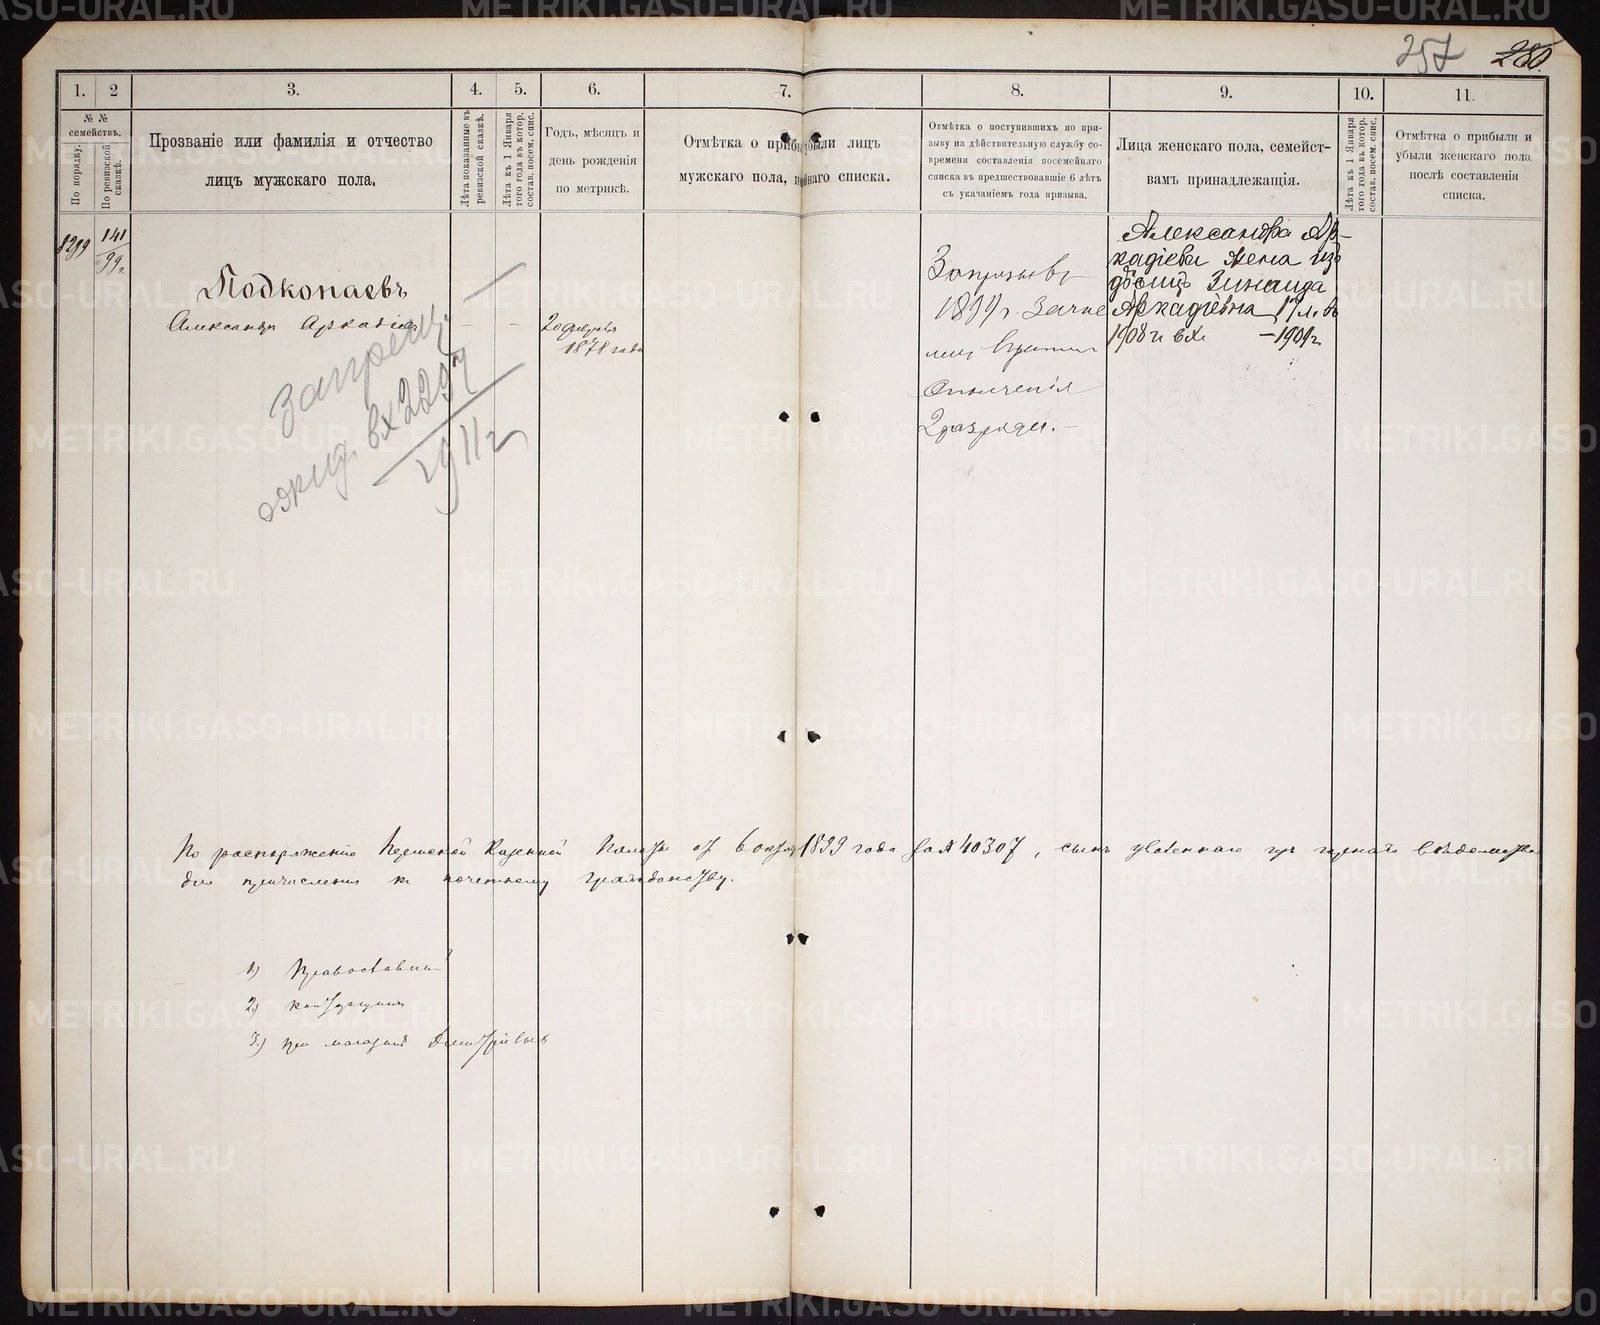 257 280.
1. 2 3. 4. 5. 6. 7. 8. 9. 10. 11.
№ №
семействъ.
По порядку.
По ревизской
сказкѣ.
Прозваніе или фамилія и отчество
лицъ мужскаго пола.
Лѣта показанные въ
ревизской сказкѣ.
Лѣта къ 1 Января
того года въ котор.
состав. посем. спис.
Годъ, мѣсяцъ и
день рожденія
по метрикѣ.
Отмѣтка о прибы были лицъ
мужскаго пола, п ейнаго списка.
Отмѣтка о поступившихъ по при-
зыву на дѣйствительную службу со-
времени составленія посемейнаго
списка въ предшествовавшіе 6 лѣтъ
съ указаніемъ года призыва.
Лица женскаго пола, семейст-
вамъ принадлежащія.
Лѣта къ 1 Января
того года въ котор.
состав. посем. спис.
Отмѣтка о прибыли и
убыли женскаго пола
послѣ составленія
списка.
8299 141
99 г.
Подкопаевъ
Александръ Аркадіевъ — — 20 февраля
1878 года
запрещ.
ожид. вх 2297
1911 г
За призывъ
1899 г. Зачис
лен въ
Ополченія
2 разряда. —
Александра Ар-
кадіева жена изъ
Зинаида
Аркадіевна 17 л. въ
1908 г. вх — 1909 г
По распоряженію Пермской Казенной Палаты от 6 окт. 1899 года за № 40307, сынъ горнаго вѣдомства
для причисленія къ почетному гражданству.
1) Православный
2) конторщикъ
3) при магазинѣ Дмитріевыхъ
METRIKI.GASO-URAL.RU